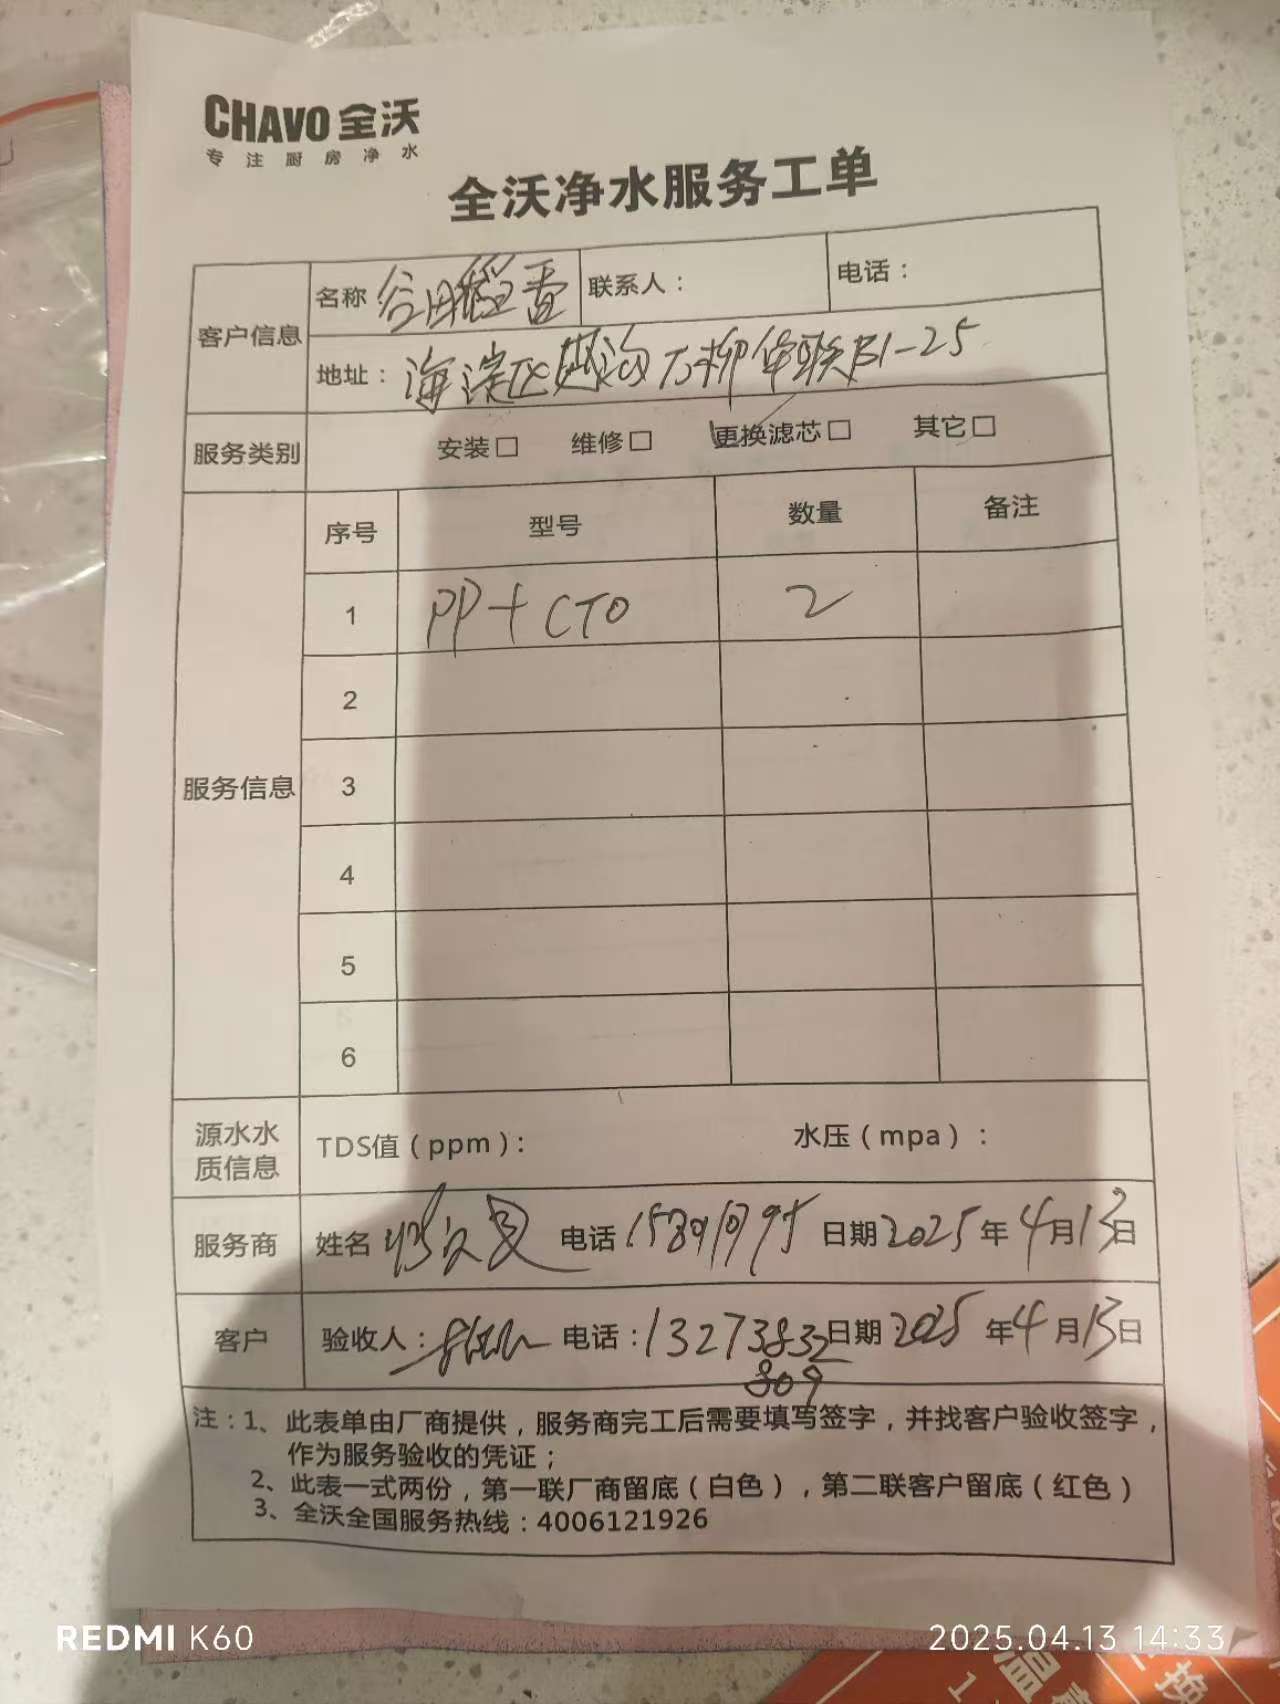 CHAVO 全沃
专注厨房净水
全沃净水服务工单
客户信息
名称 谷田稻香 联系人： 电话：
地址：海淀区 万柳华联B1-25
服务类别 安装□ 维修□ 更换滤芯□ 其它□
服务信息
序号 型号 数量 备注
1 PP+CTO 2
2
3
4
5
6
源水水质信息 TDS值（ppm）： 水压（mpa）：
服务商 姓名 电话 日期 2025 年 4 月 13 日
客户 验收人： 电话：13273832 日期 2025 年 4 月 13 日
809
注：1、此表单由厂商提供，服务商完工后需要填写签字，并找客户验收签字，
作为服务验收的凭证；
2、此表一式两份，第一联厂商留底（白色），第二联客户留底（红色）
3、全沃全国服务热线：4006121926
REDMI K60
2025.04.13 14:33
温
换